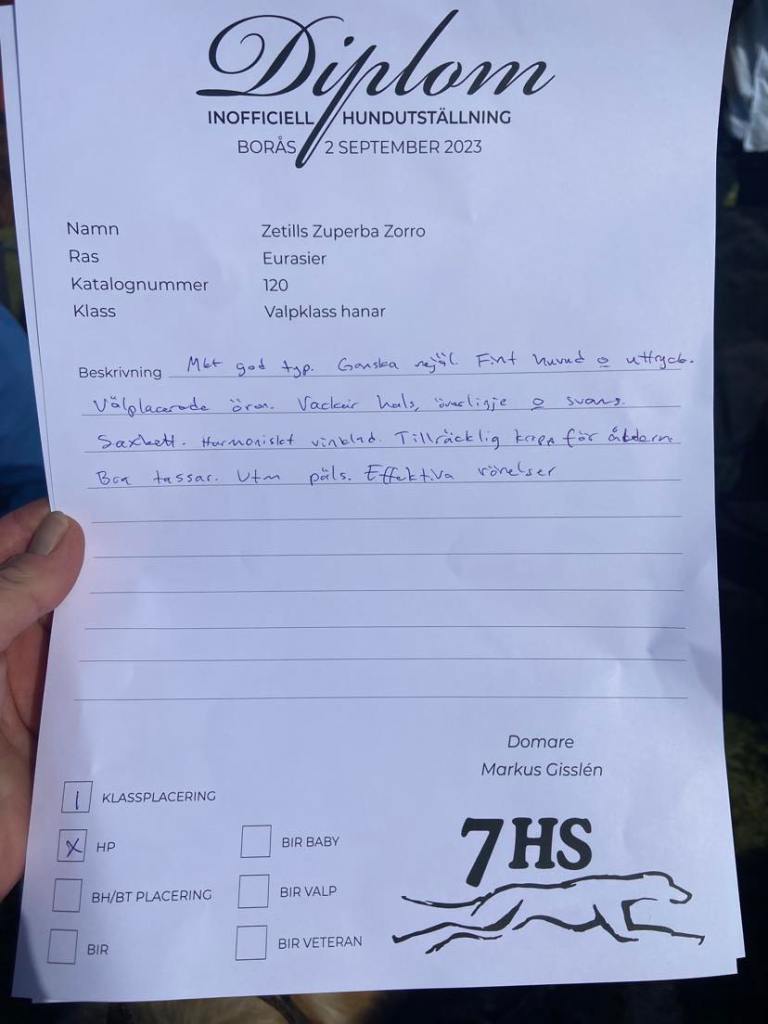 Diplom
INOFFICIELL HUNDUTSTÄLLNING
BORÅS 2 SEPTEMBER 2023
Namn Zetills Zuperba Zorro
Ras Eurasier
Katalognummer 120
Klass Valpklass hanar
Beskrivning Mkt god typ. Ganska rejäl. Fint huvud o uttryck.
Välplacerade öron. Vacker hals, överlinje o svans.
Saxbett. Harmoniskt vinklad. Tillräcklig kropp för åldern.
Bra tassar. Utm päls. Effektiva rörelser
Domare
Markus Gisslén
1 KLASSPLACERING
X HP
BIR BABY
BH/BT PLACERING
BIR VALP
BIR
BIR VETERAN
7HS